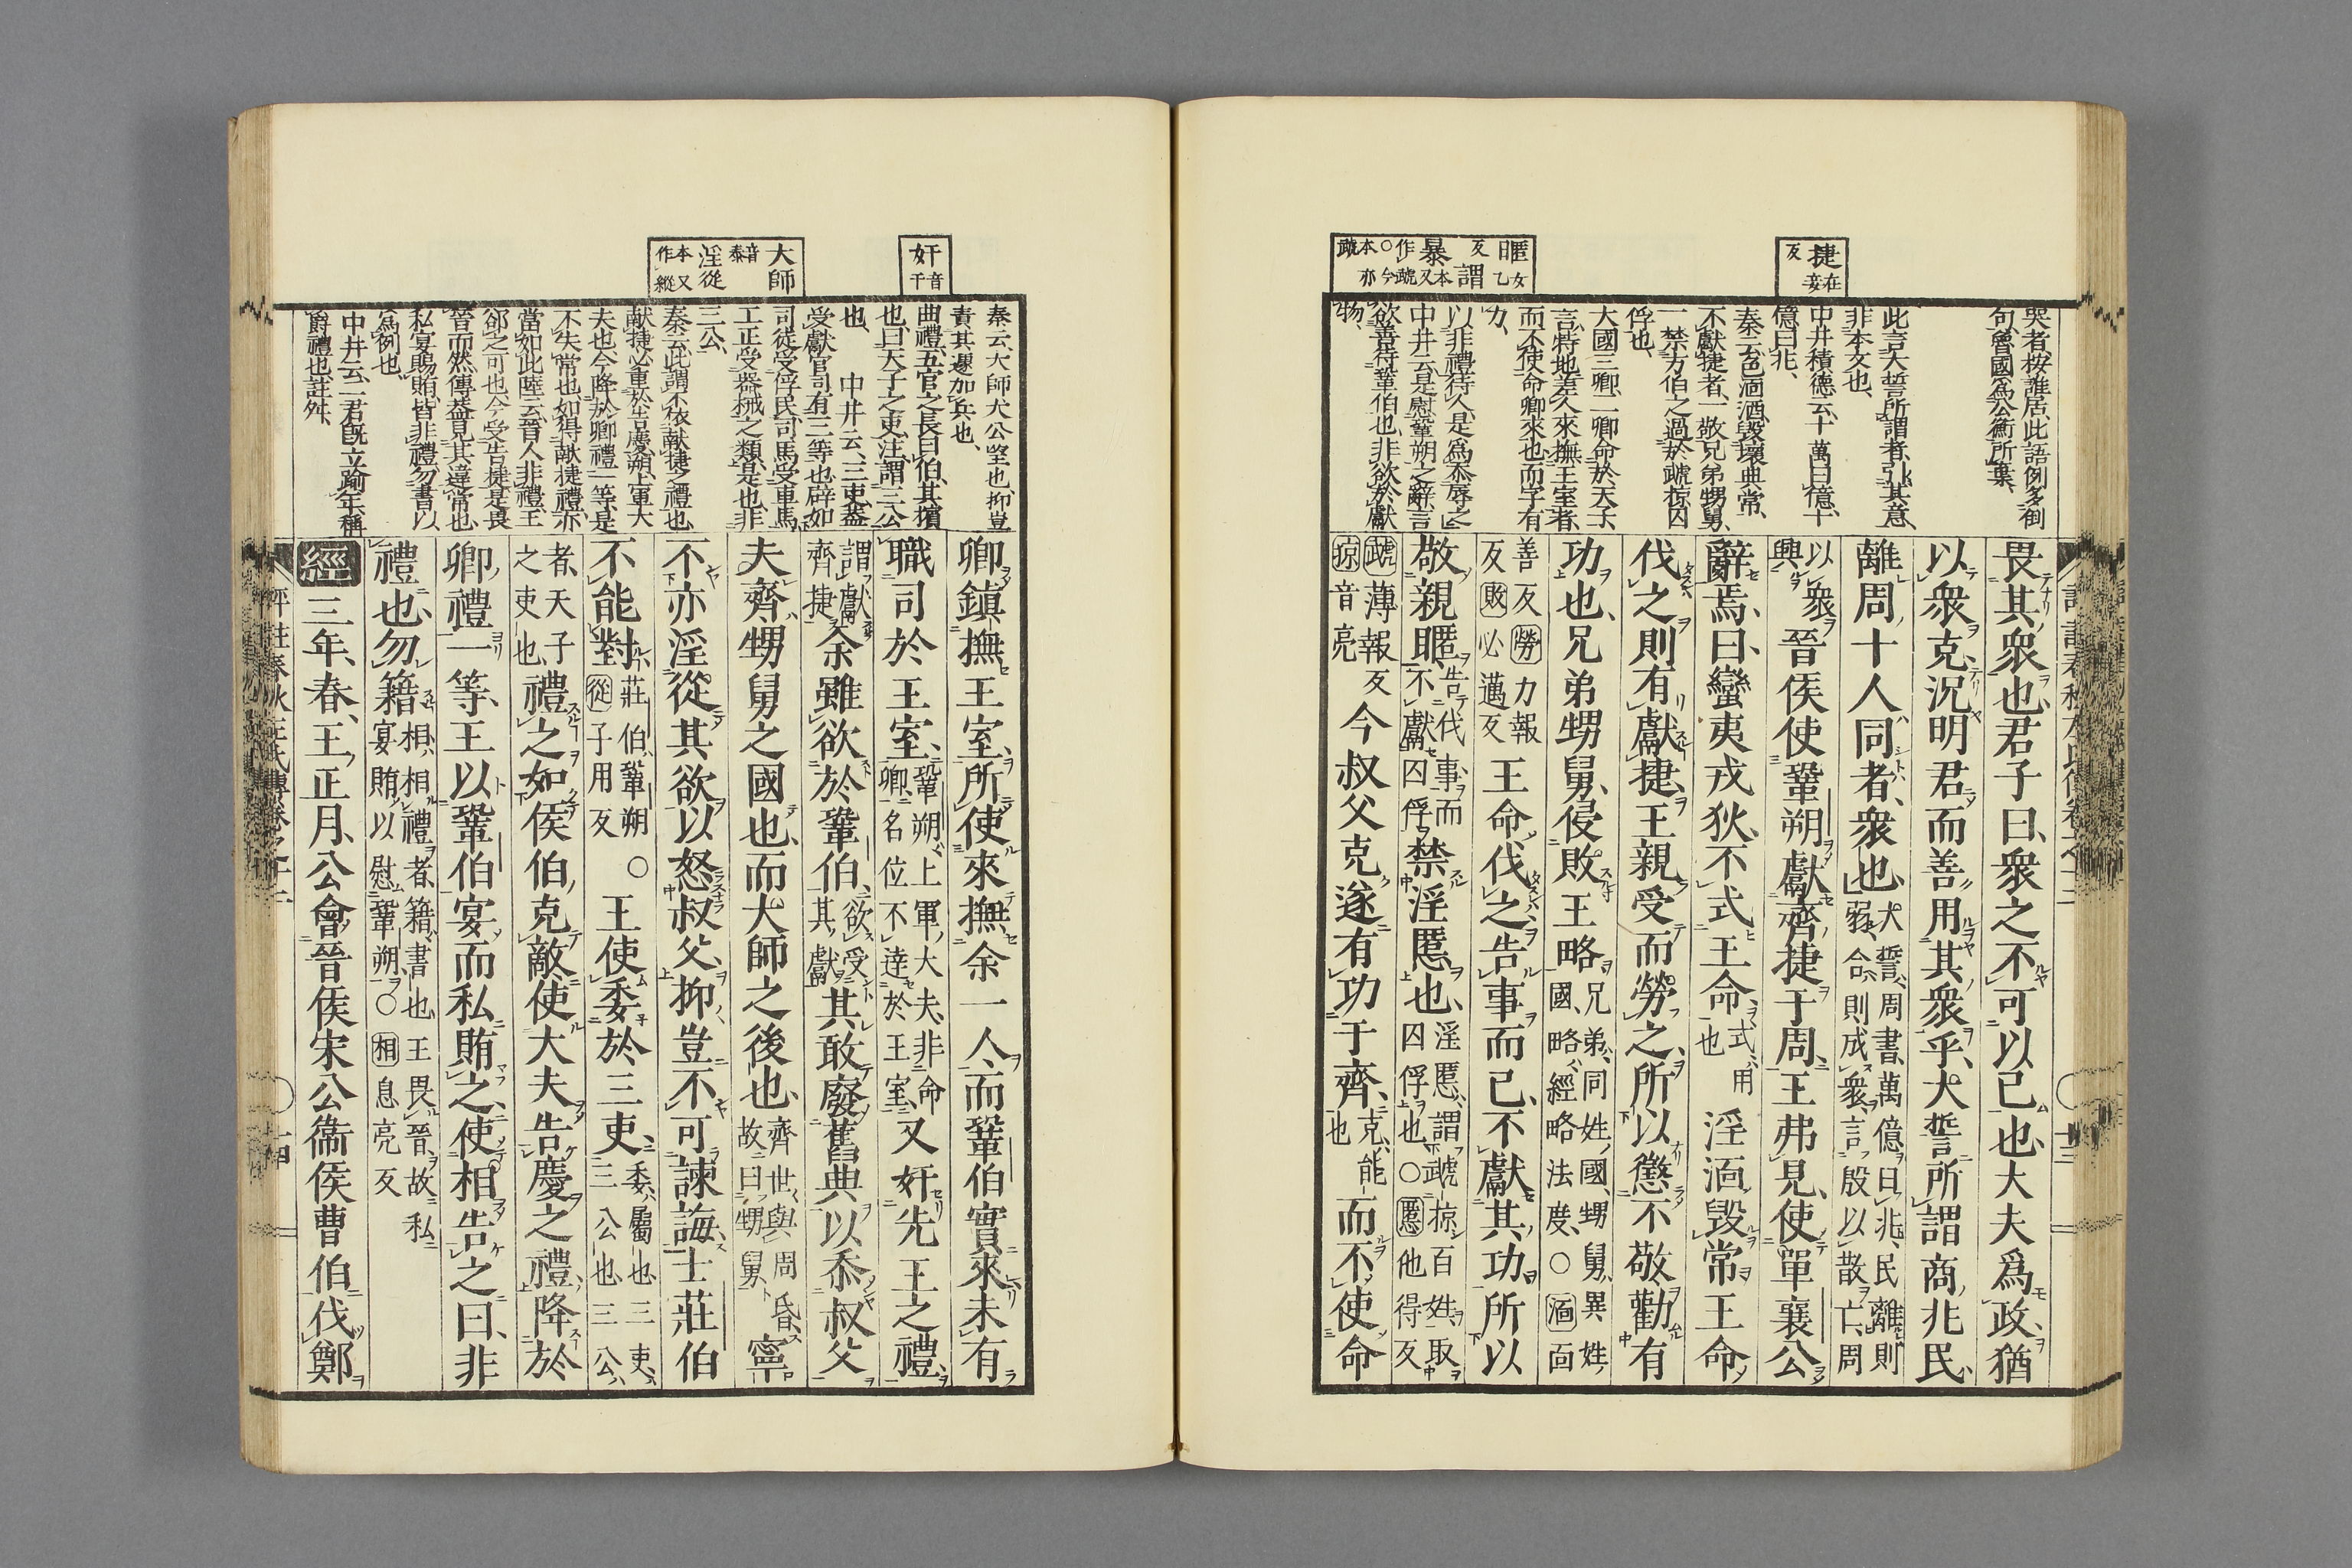 捷 在妾反
暱 女乙反 謂暴 本又作虣今亦○本虣
哭者桉誰居此語例多在
句魯國為公衡所棄
此言大誓所謂者引其意
非本文也
中井積德云十萬曰億十
億曰兆
秦云色湎酒毀壞典常
不獻捷者一敬兄弟甥舅
一禁方伯之過於虣掠囚
俘也
大國三卿二卿命於天子
言特地差久來撫王室者
而不使命卿來也而字有
力
以非禮待人是為忝辱之
中井云是慰鞏朔之辭言
欲善待鞏伯也非欲於獻
物
畏其衆也君子曰衆之不可以已也大夫爲政猶
以衆克況明君而善用其衆乎大誓所謂商兆民
離周十人同者衆也大誓周書萬億曰兆民離則弱合則成衆言殷以散亡周
以衆興晉侯使鞏朔獻齊捷于周王弗見使單襄公
辭焉曰蠻夷戎狄不式王命式用也淫湎毀常王命
伐之則有獻捷王親受而勞之所以懲不敬勸有
功也兄弟甥舅侵敗王略兄弟同姓國甥舅異姓國略經略法度○湎面
善反勞力報反敗必邁反王命伐之告事而已不獻其功所以
敬親暱告伐事而不獻囚俘禁淫慝也淫慝謂虣掠百姓取囚俘也○慝他得反
虣薄報反掠音亮今叔父克遂有功于齊克能也而不使命
評註春秋左氏傳卷之十二
十三
奸 音干
大師 音泰 淫從 本又作縱
秦云大師大公望也抑豈
責其遽加兵也
曲禮五官之長曰伯其擯
也曰天子之吏注謂三公
也 中井云三吏蓋
受獻官司有三等也辟如
司徒受俘民司馬受車馬
工正受器械之類是也非
三公
秦云此謂不依献捷之禮也
献捷必重於告慶朔上軍大
夫也今降於卿禮一等是
不失常也如得献捷禮亦
當如此陸云晉人非禮王
郤之可也今受告捷是畏
晉而然傳蓋見其違常也
私宴賜賄皆非禮勿書以
為例也
中井云二君既立踰年稱
爵禮也註舛
卿鎮撫王室所使來撫余一人而鞏伯實來未有
職司於王室鞏朔上軍大夫非命卿名位不達於王室又奸先王之禮
謂獻齊捷余雖欲於鞏伯欲受其獻其敢廢舊典以忝叔父
夫齊甥舅之國也而大師之後也齊世與周昏故曰甥舅寧
不亦淫從其欲以怒叔父抑豈不可諫誨士莊伯
不能對莊伯鞏朔從子用反○王使委於三吏委屬也三吏三公也三公
者天子之吏也禮之如侯伯克敵使大夫告慶之禮降於
卿禮一等王以鞏伯宴而私賄之使相告之曰非
禮也勿籍相相禮者籍書也王畏晉故私宴賄以慰鞏朔○相息亮反
經三年春王正月公會晉侯宋公衞侯曹伯伐鄭
評註春秋左氏傳卷之十二
十四